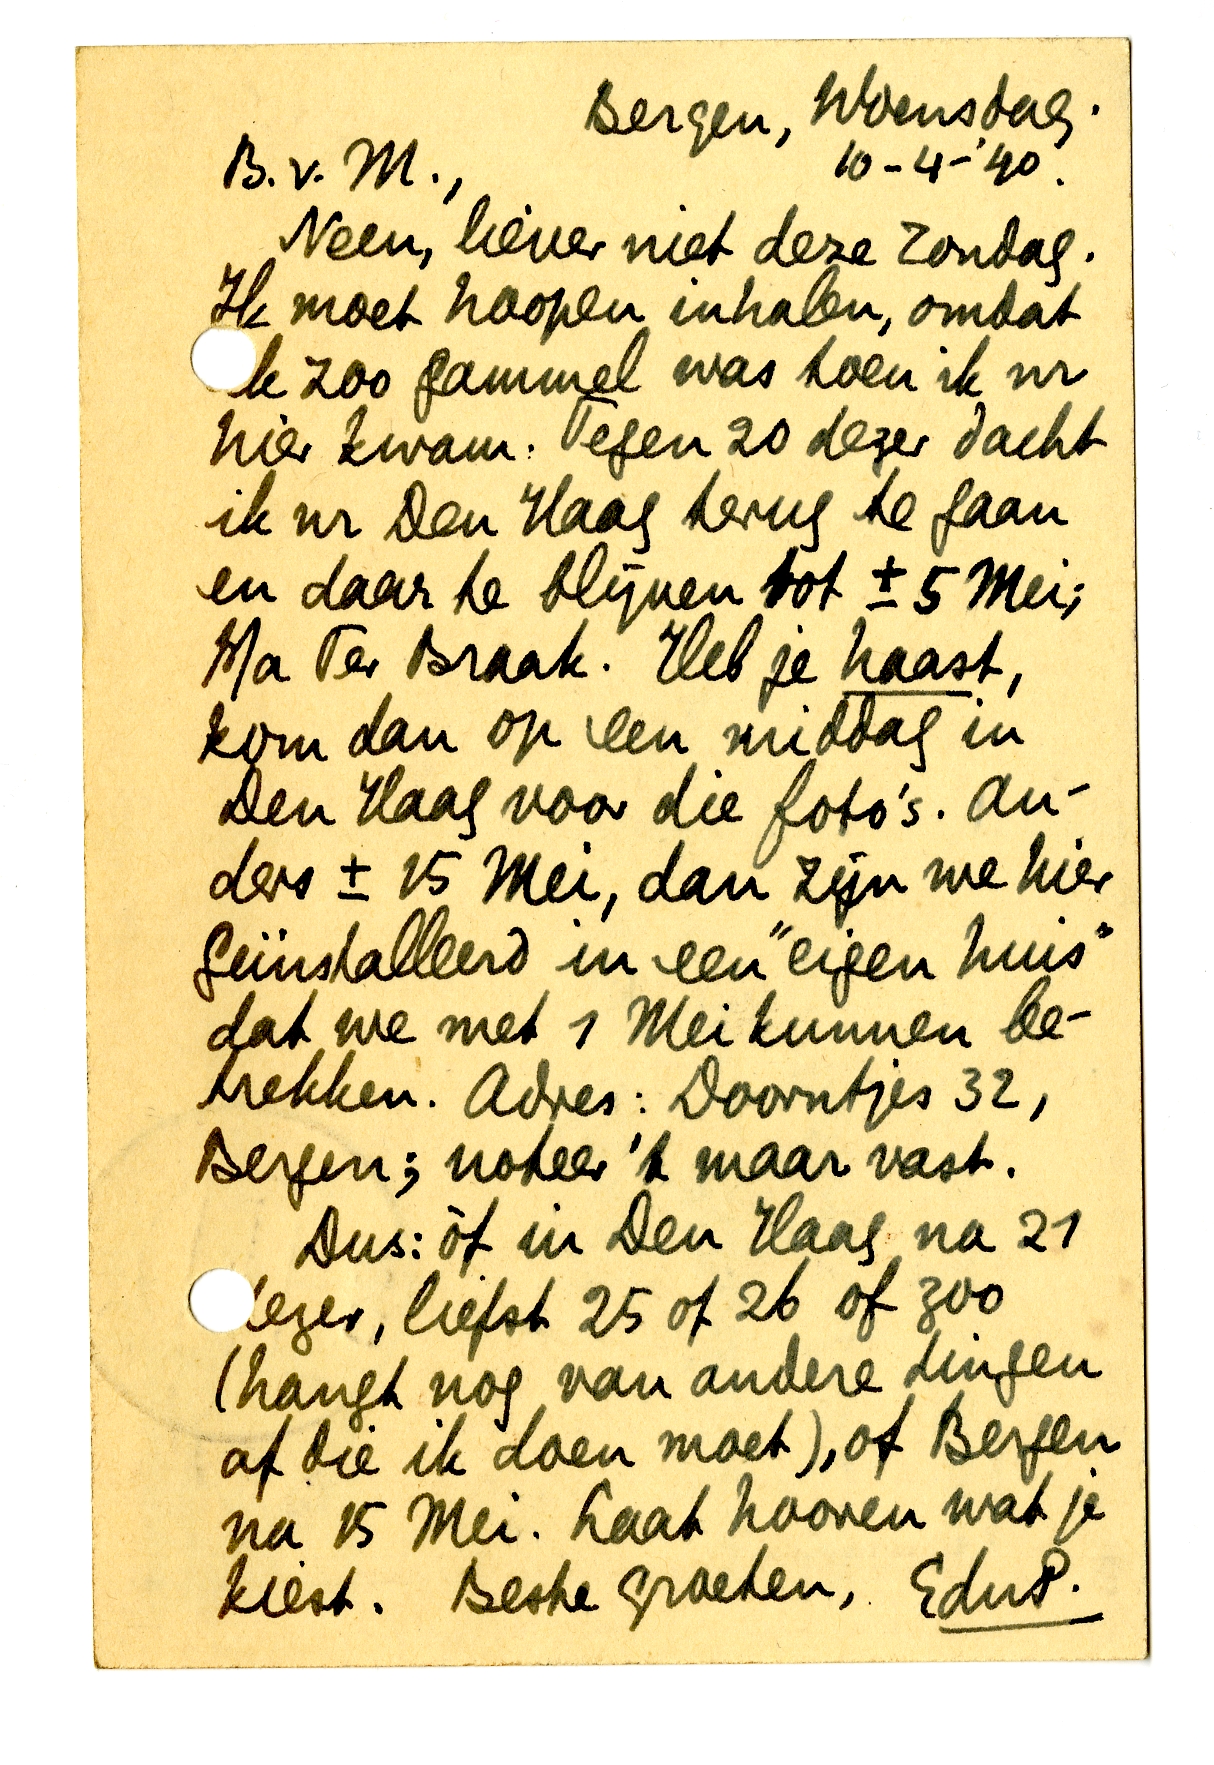 Bergen, Woensdag.
10-4-'40.
B. v. M.,
Neen, liever niet deze Zondag.
Ik moet hoopen inhalen, omdat
ik zoo gammel was toen ik nr
hier kwam. Tegen 20 dezer dacht
ik nr Den Haag terug te gaan
en daar te blijven tot ± 5 Mei;
p/a Ter Braak. Heb je haast,
kom dan op een middag in
Den Haag voor die foto's. An-
ders ± 15 Mei, dan zijn we hier
geïnstalleerd in een "eigen huis"
dat we met 1 Mei kunnen be-
trekken. Adres: Doorntjes 32,
Bergen; noteer 't maar vast.
Dus: òf in Den Haag na 21
dezer, liefst 25 of 26 of zoo
(hangt nog van andere dingen
af die ik doen moet), of Bergen
na 15 Mei. Laat hooren wat je
kiest. Beste groeten, EduP.